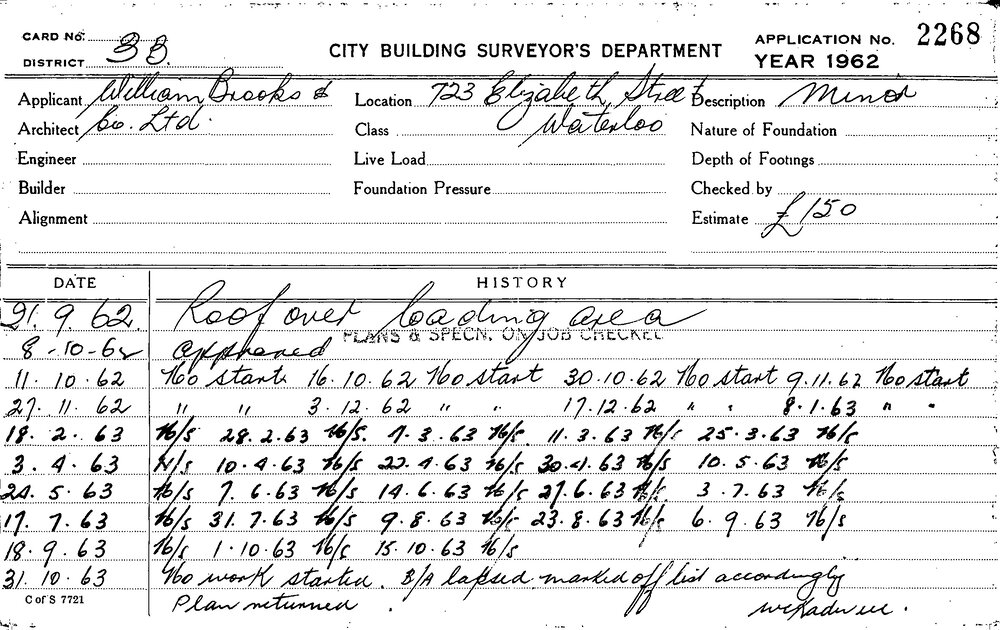 CARD No. 3B.
DISTRICT
CITY BUILDING SURVEYOR'S DEPARTMENT
APPLICATION No. 2268
YEAR 1962
Applicant William Brooks & Location 723 Elizabeth Street Description Minor
Architect Co. Ltd. Class Waterloo Nature of Foundation
Engineer Live Load Depth of Footings
Builder Foundation Pressure Checked by
Alignment Estimate £150
DATE HISTORY
21.9.62. Roof over loading area
PLANS & SPECN. ON JOB CHECKED
8-10-62 approved
11.10.62 No start 16.10.62 No start 30.10.62 No start 9.11.62 No start
27.11.62 " " 3.12.62 " " 17.12.62 " " 8.1.63 " "
18.2.63 N/S 28.2.63 N/S. 7.3.63 N/S. 11.3.63 N/S 25.3.63 N/S
3.4.63 N/S 10.4.63 N/S 22.4.63 N/S 30.4.63 N/S 10.5.63 N/S
24.5.63 N/S 7.6.63 N/S 14.6.63 N/S 27.6.63 N/S. 3.7.63 N/S
17.7.63 N/S 31.7.63 N/S 9.8.63 N/S 23.8.63 N/S 6.9.63 N/S
18.9.63 N/S 1.10.63 N/S 15.10.63 N/S
31.10.63 No work started. B/A lapsed marked off list accordingly
C of S 7721
Plan returned.